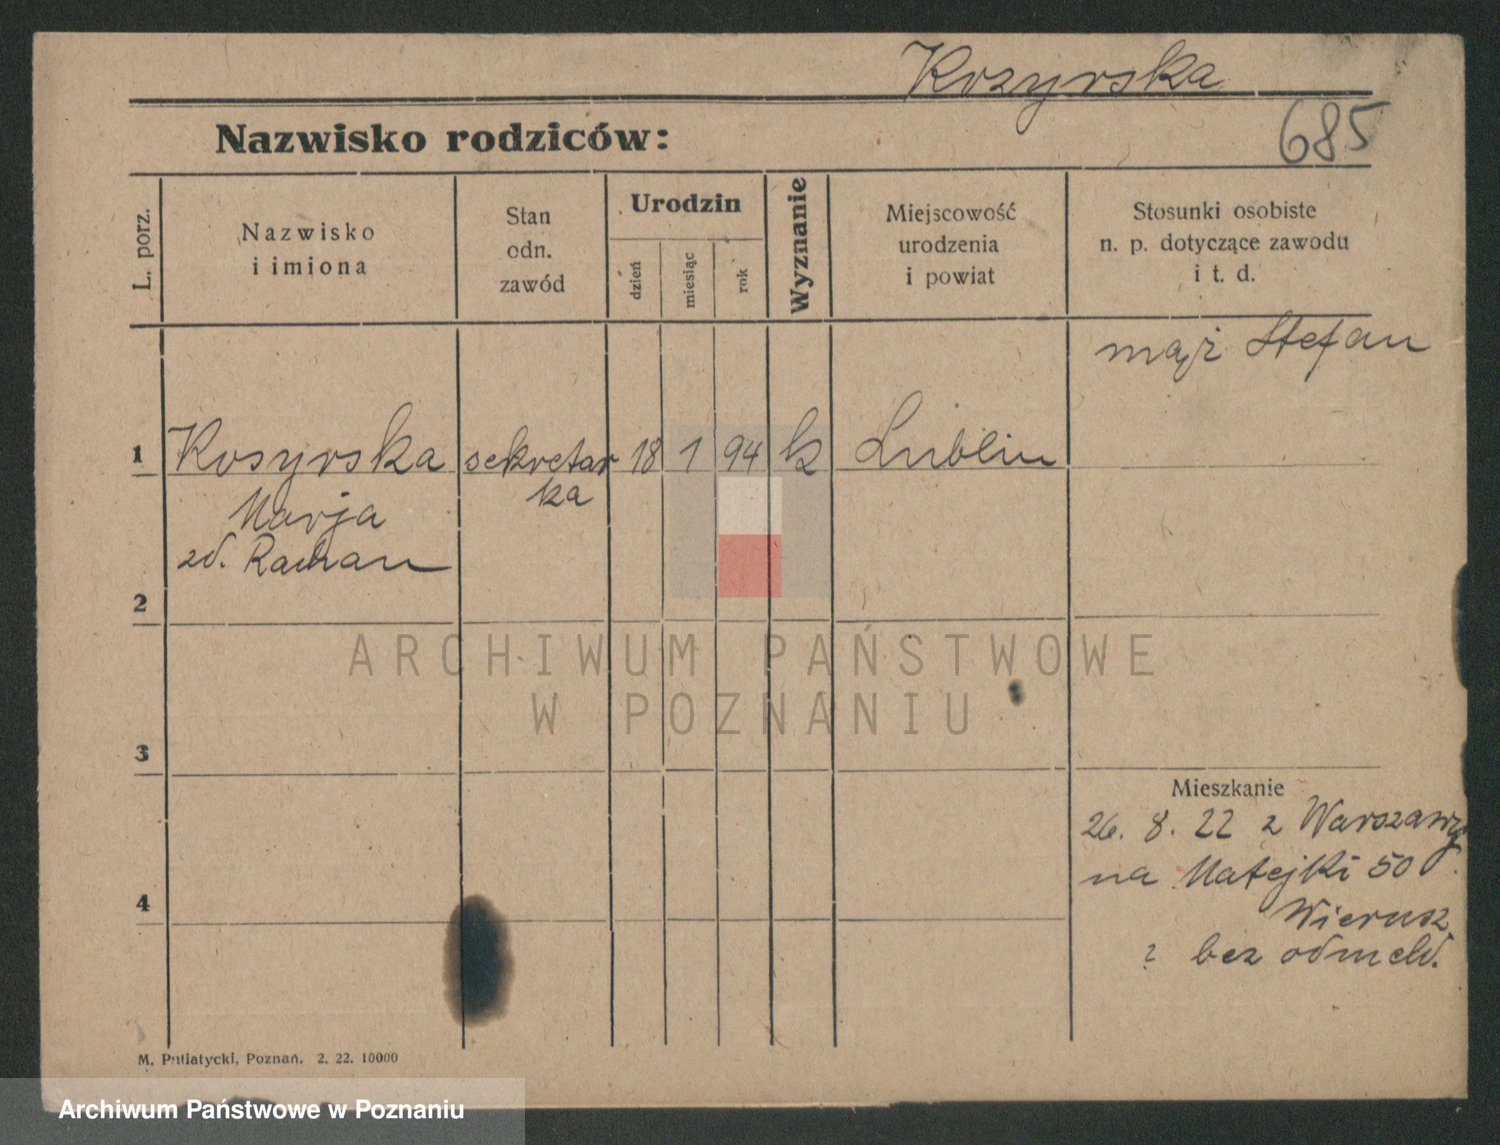 Kozyrska
685
Nazwisko rodziców:
L. porz.
Nazwisko
i imiona
Stan
odn.
zawód
Urodzin
dzień
miesiąc
rok
Wyznanie
Miejscowość
urodzenia
i powiat
Stosunki osobiste
n. p. dotyczące zawodu
i t. d.
mąż Stefan
1 Kosyrska sekretar 18 1 94 k Lublin
ka
Marja
zd.
2
ARCHIWUM PAŃSTWOWE
W POZNANIU
3
Mieszkanie
26. 8. 22 z Warszawy
na Matejki 50
Wierusz
4
? bez odmeld.
M. Putiatycki, Poznań. 2. 22. 10000
Archiwum Państwowe w Poznaniu